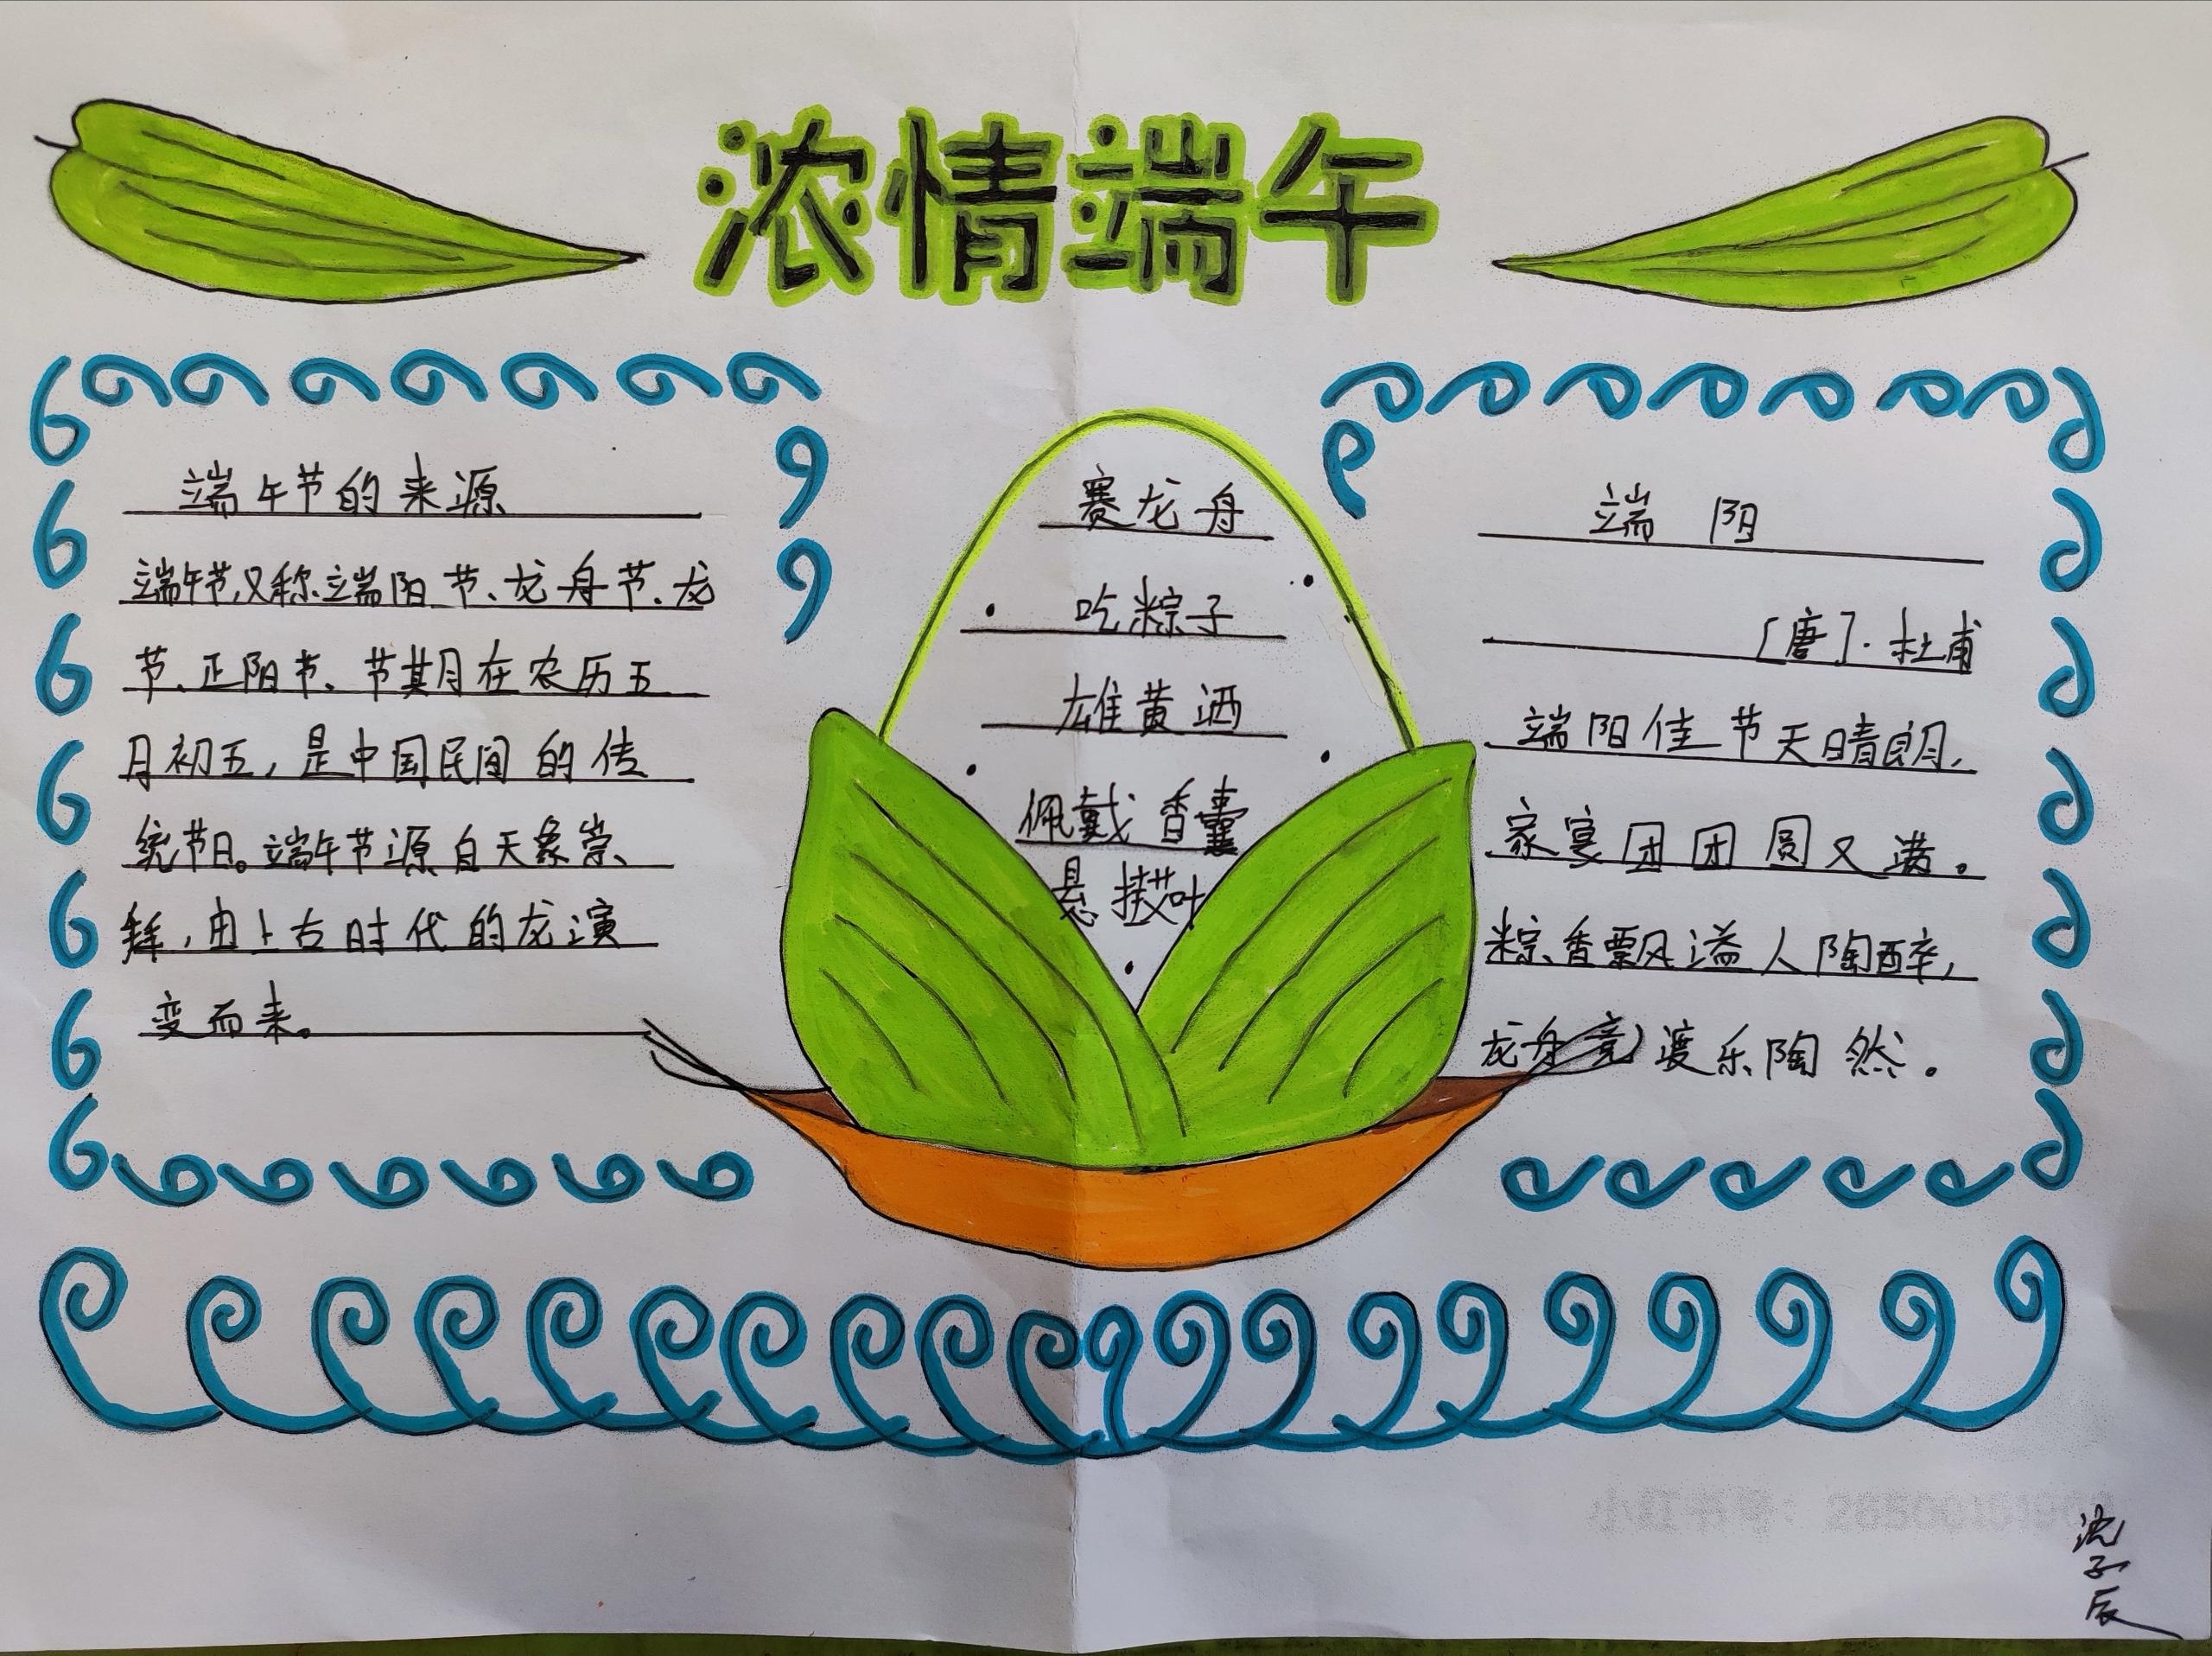 浓情端午
端午节的来源
端午节又称端阳节、龙舟节、龙
节、正阳节、节期在农历五
月初五，是中国民间的传
统节日。端午节源自天象崇
拜，由上古时代的龙演
变而来。
赛龙舟
吃粽子
雄黄酒
佩戴香囊
悬挂艾叶
端阳
[唐]·杜甫
端阳佳节天晴朗，
家宴团团圆又满。
粽香飘溢人陶醉，
龙舟竞渡乐陶然。
沈子辰